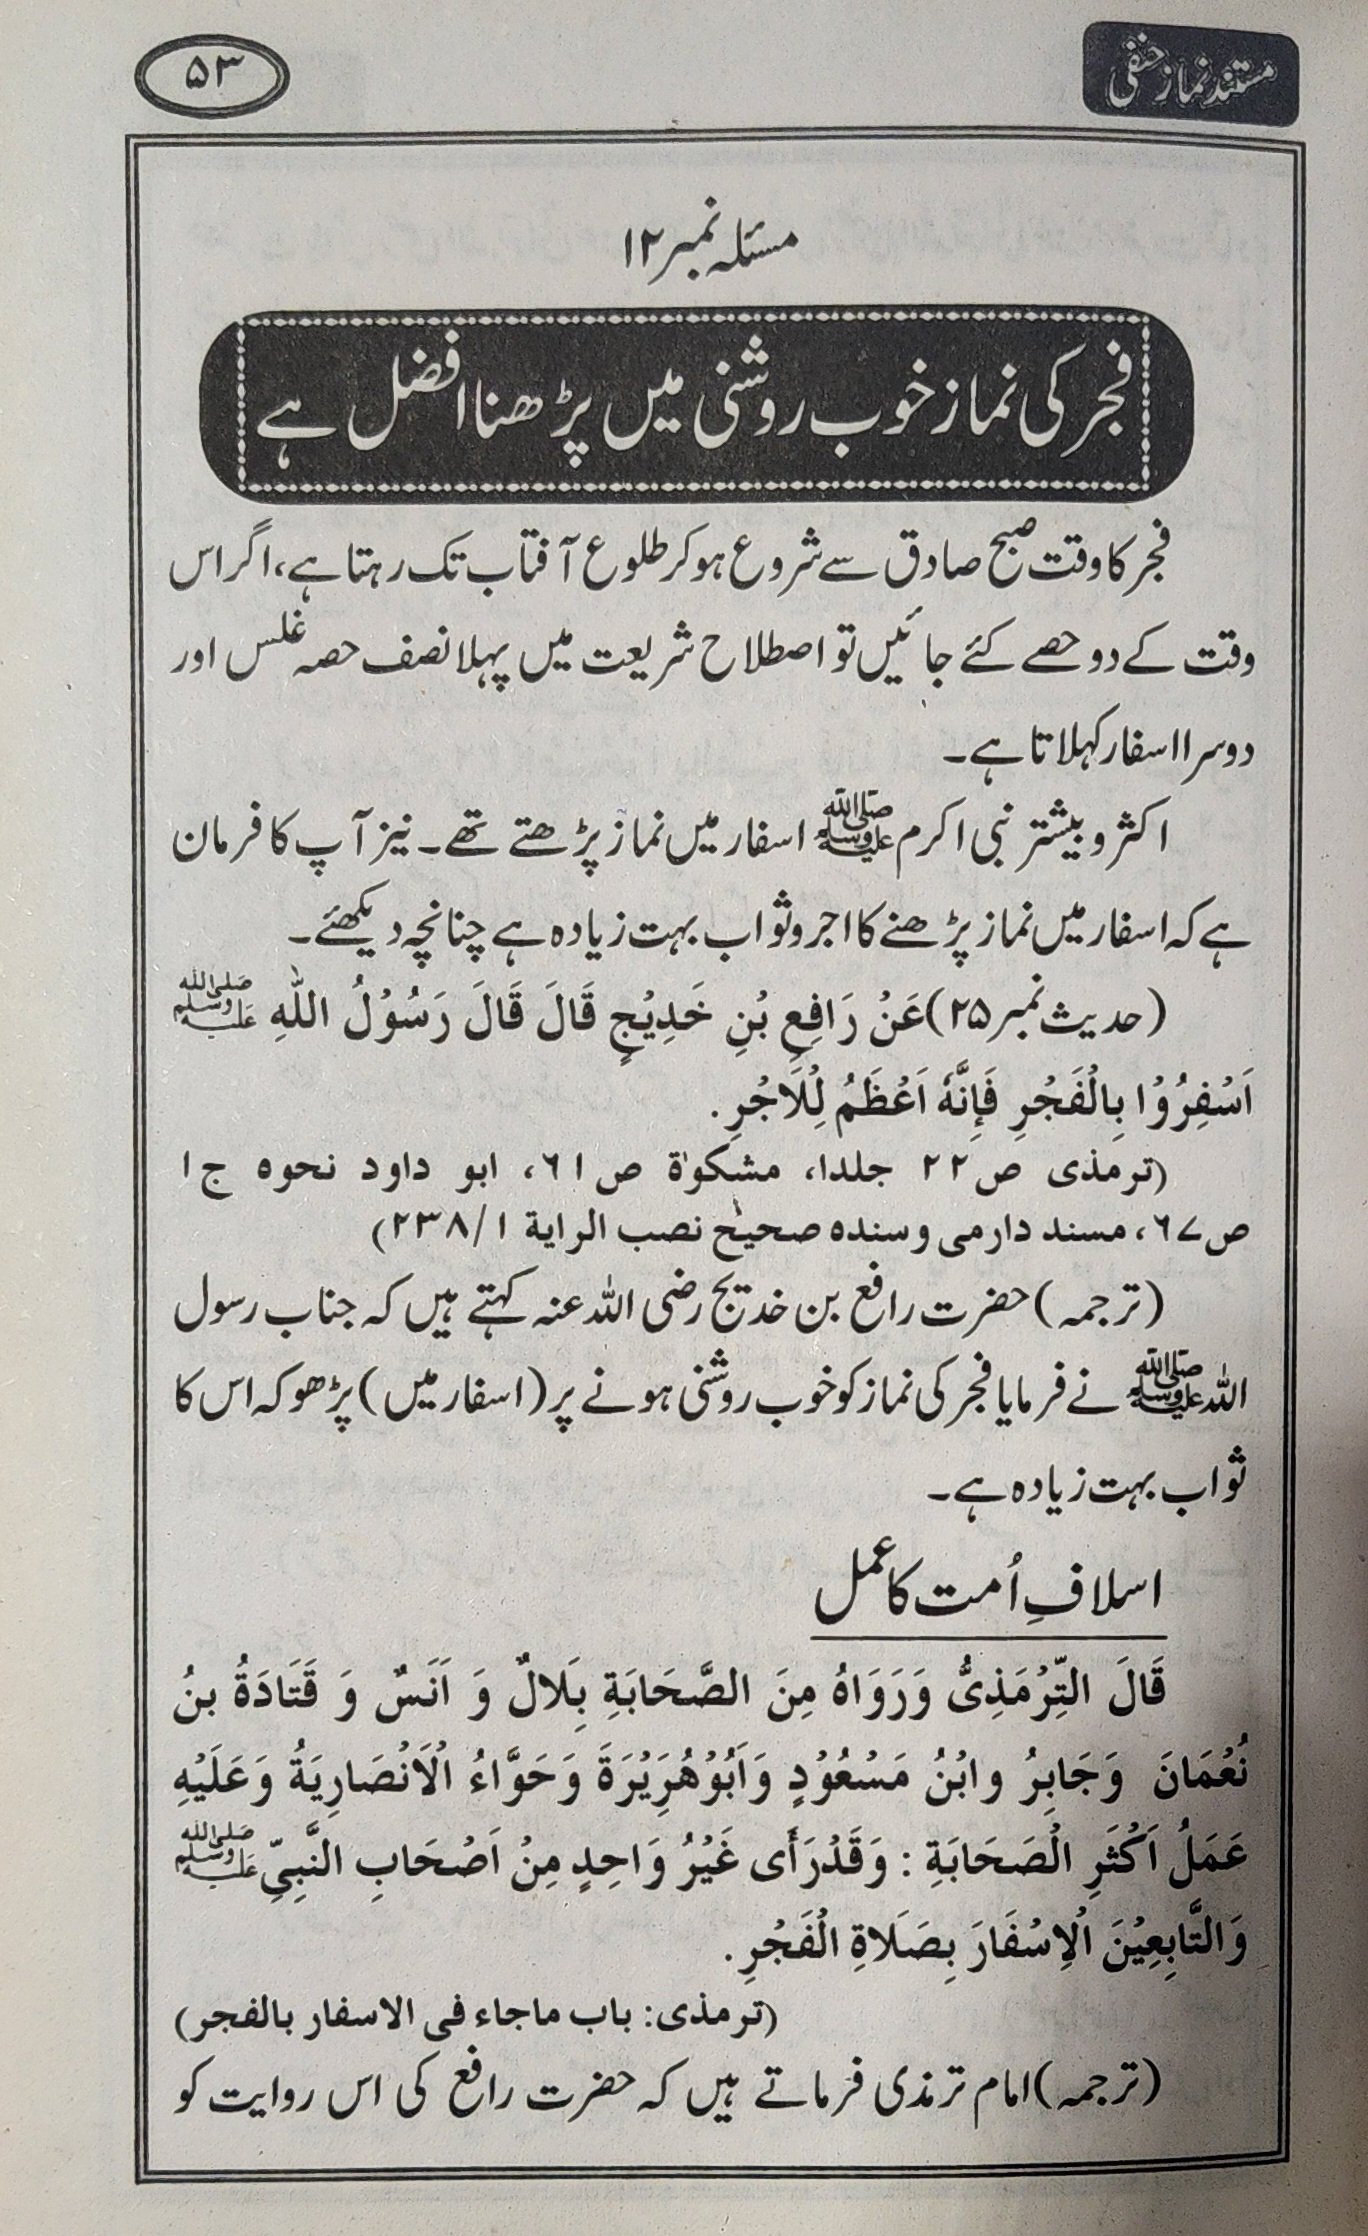 مستند نماز حنفی
۵۳
مسئلہ نمبر ۱۲
فجر کی نماز خوب روشنی میں پڑھنا افضل ہے
فجر کا وقت صبح صادق سے شروع ہو کر طلوع آفتاب تک رہتا ہے، اگر اس
وقت کے دو حصے کئے جائیں تو اصطلاح شریعت میں پہلا نصف حصہ غلس اور
دوسرا اسفار کہلاتا ہے۔
اکثر و بیشتر نبی اکرم ﷺ اسفار میں نماز پڑھتے تھے۔ نیز آپ کا فرمان
ہے کہ اسفار میں نماز پڑھنے کا اجر و ثواب بہت زیادہ ہے چنانچہ دیکھئے۔
(حدیث نمبر ۲۵) عَنْ رَافِعِ بْنِ خَدِيْجٍ قَالَ قَالَ رَسُوْلُ اللّٰهِ ﷺ
اَسْفِرُوْا بِالْفَجْرِ فَاِنَّهٗ اَعْظَمُ لِلْاَجْرِ.
(ترمذی ص ۲۲ جلد۱، مشکوٰۃ ص ۶۱، ابو داود نحوه ج ۱
ص ۶۷، مسند دارمی و سندہ صحیح نصب الرایة ۱/ ۲۳۸)
(ترجمہ) حضرت رافع بن خدیج رضی اللہ عنہ کہتے ہیں کہ جناب رسول
اللہ ﷺ نے فرمایا فجر کی نماز کو خوب روشنی ہونے پر (اسفار میں) پڑھو کہ اس کا
ثواب بہت زیادہ ہے۔
اسلافِ اُمت کا عمل
قَالَ التِّرْمَذِیُّ وَرَوَاهُ مِنَ الصَّحَابَةِ بِلَالٌ وَ اَنَسٌ وَ قَتَادَةُ بنُ
نُعْمَانَ وَجَابِرُ وابْنُ مَسْعُوْدٍ وَاَبُوْهُرَيْرَةَ وَحَوَّاءُ الْاَنْصَارِيَةُ وَعَلَيْهِ
عَمَلُ اَكْثَرِ الْصَحَابَةِ : وَقَدْرَأَى غَيْرُ وَاحِدٍ مِنْ اَصْحَابِ النَّبِيِّ ﷺ
وَالتَّابِعِيْنَ الْاِسْفَارَ بِصَلَاةِ الْفَجْرِ.
(ترمذی: باب ماجاء فی الاسفار بالفجر)
(ترجمہ) امام ترمذی فرماتے ہیں کہ حضرت رافع کی اس روایت کو